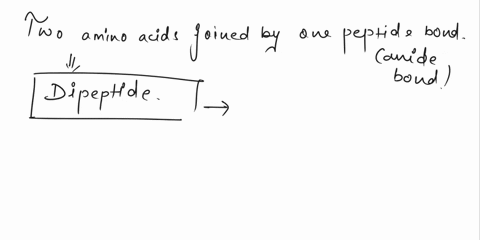 Two amino acids joined by one peptide bond.
(amide
bond)
Dipeptide.